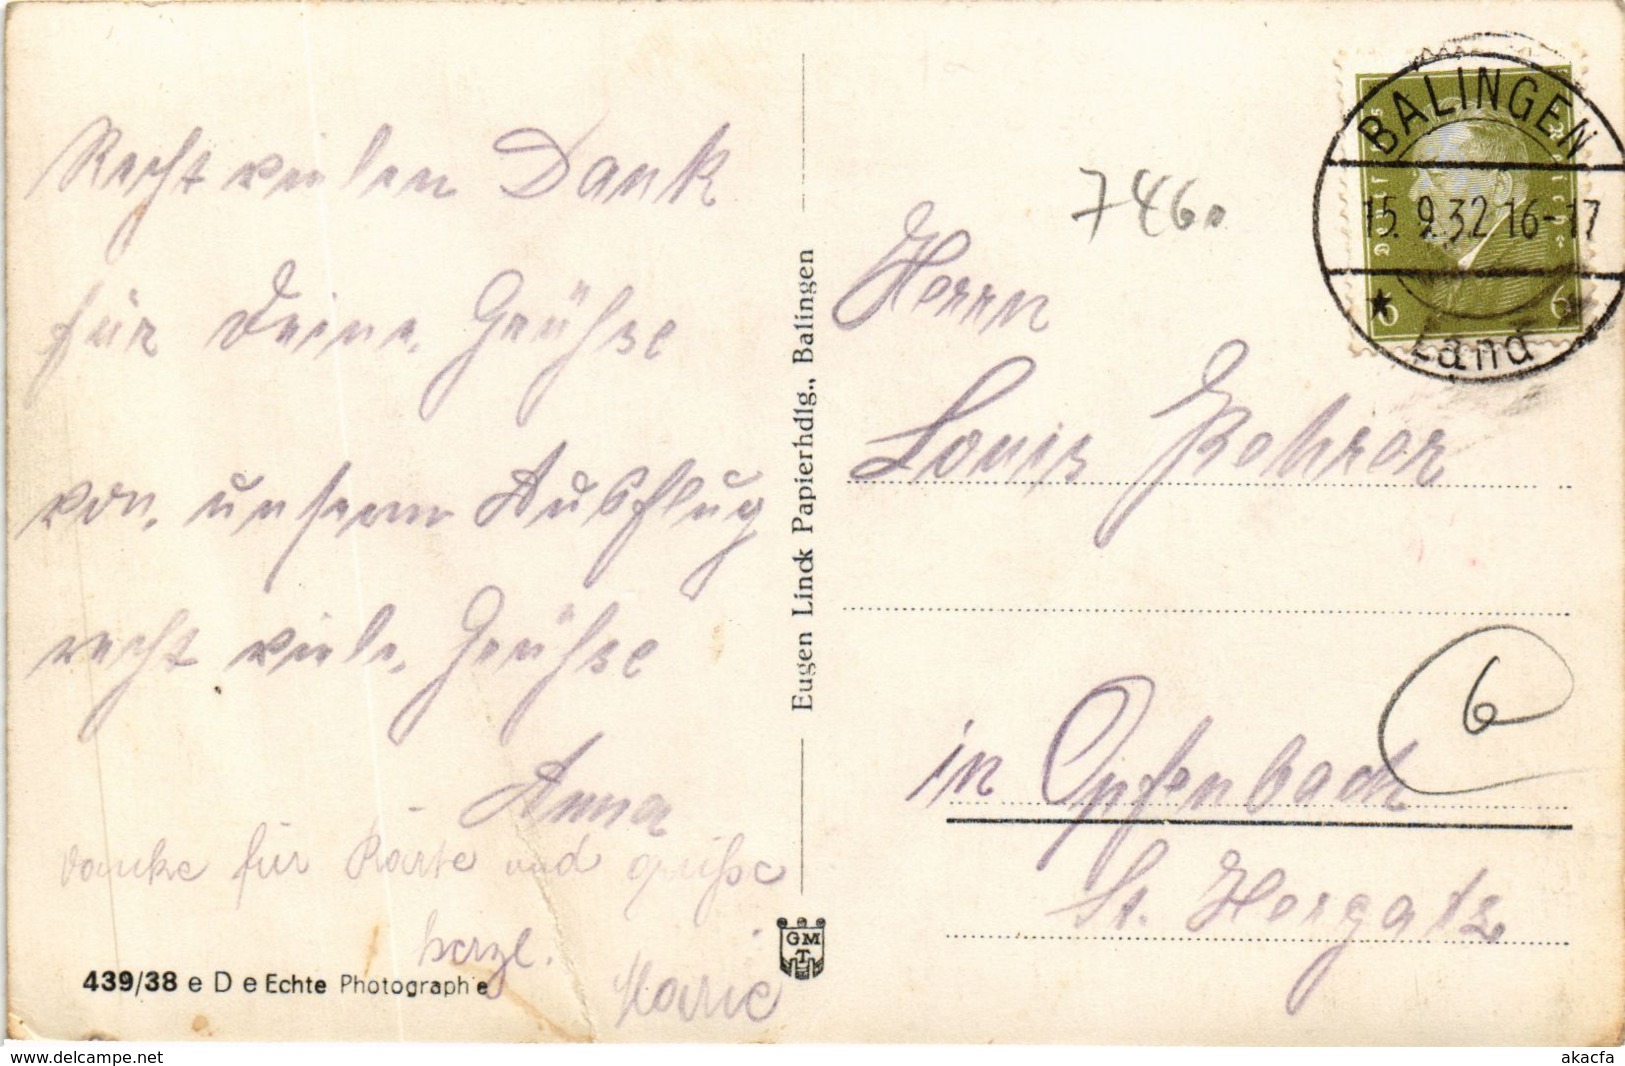 Recht vielen Dank
für Deine Grüße
von unserm Ausflug
recht viele Grüße
Anna
Danke für Karte und grüße
herzl.
Marie
439/38 e D e Echte Photographie
Eugen Linck Papierhdlg., Balingen
GM
T
7460
BALINGEN
15.9.32 16-17
Land
Deutsches Reich
6 6
Herrn
Louis Rohrer
6
in Opfenbach
St. Hergatz
www.delcampe.net
akacfa